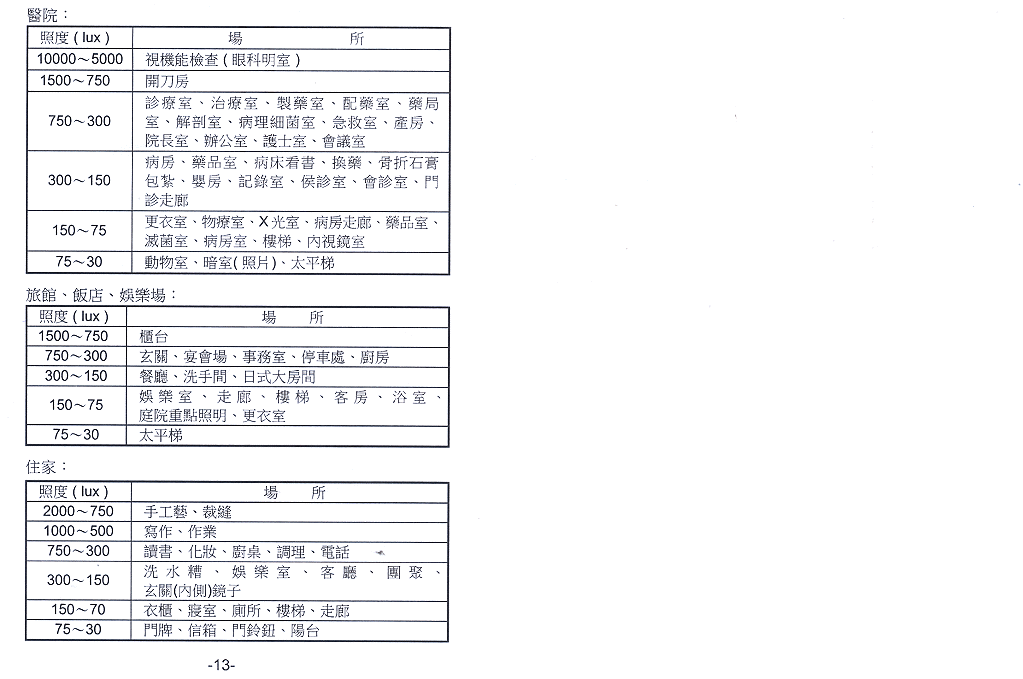 醫院：
照度 ( lux ) 場 所
10000～5000 視機能檢查 ( 眼科明室 )
1500～750 開刀房
診療室、治療室、製藥室、配藥室、藥局
750～300 室、解剖室、病理細菌室、急救室、產房、
院長室、辦公室、護士室、會議室
病房、藥品室、病床看書、換藥、骨折石膏
300～150 包紮、嬰房、記錄室、侯診室、會診室、門
診走廊
150～75 更衣室、物療室、X 光室、病房走廊、藥品室、
滅菌室、病房室、樓梯、內視鏡室
75～30 動物室、暗室( 照片 )、太平梯
旅館、飯店、娛樂場：
照度 ( lux ) 場 所
1500～750 櫃台
750～300 玄關、宴會場、事務室、停車處、廚房
300～150 餐廳、洗手間、日式大房間
150～75 娛樂室、走廊、樓梯、客房、浴室、
庭院重點照明、更衣室
75～30 太平梯
住家：
照度 ( lux ) 場 所
2000～750 手工藝、裁縫
1000～500 寫作、作業
750～300 讀書、化妝、廚桌、調理、電話
300～150 洗水糟、娛樂室、客廳、團聚、
玄關(內側)鏡子
150～70 衣櫃、寢室、廁所、樓梯、走廊
75～30 門牌、信箱、門鈴鈕、陽台
-13-